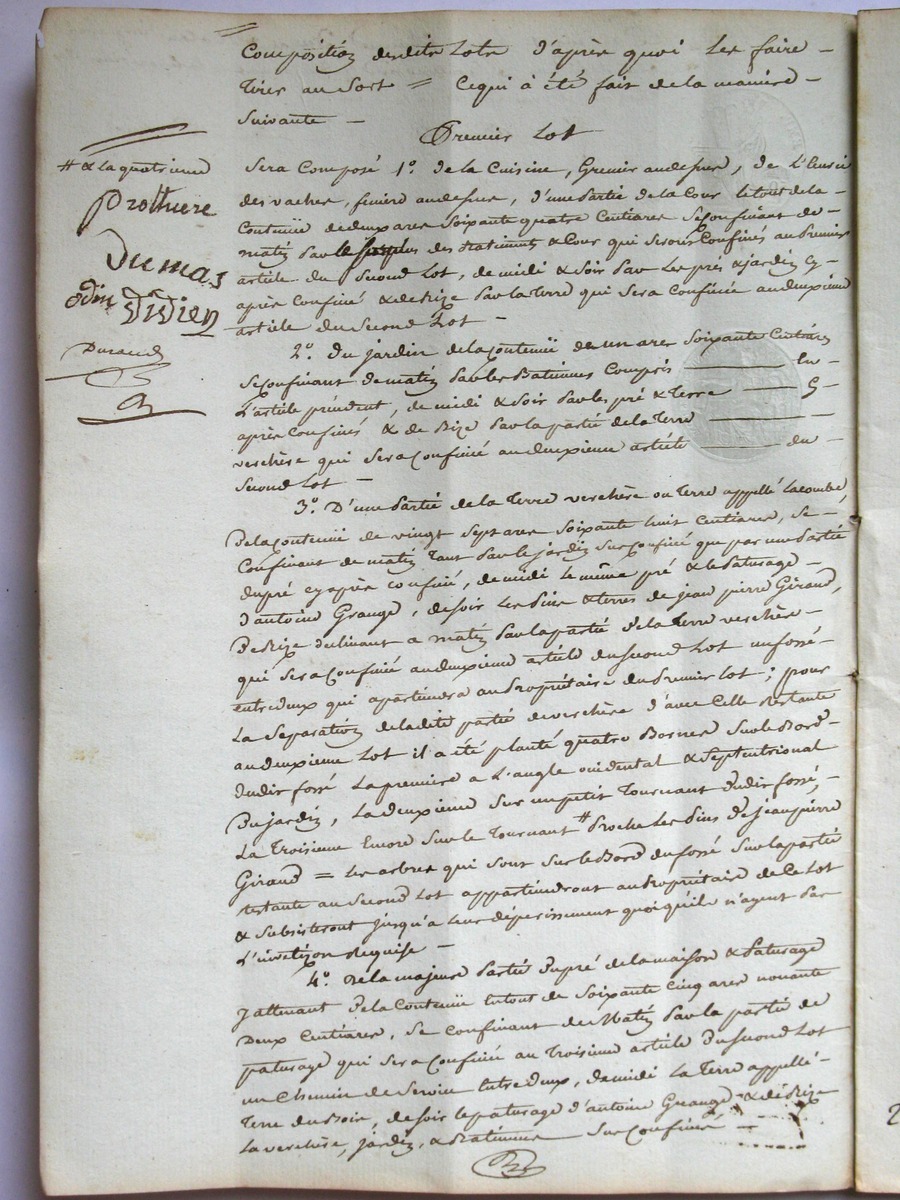 Composition desdits Lots d'après quoi les faire
Tirer au Sort = Ce qui à été fait de la maniere
Suivante
Premier Lot
# & La quatrieme
Prothiere
Dumas
odin Didien
Durand
Sera Composé 1o. de la Cuisine, Grenier audessus, de L'Ecurie
des vaches, feniere audessus, d'une Partie de la Cour le tout de la
Contenüe de deux ares Soixante quatre Centiares Se Confinant de
matin par le surplus des Batiments & Cour qui Seront Confinés au Premier
article du Second Lot, de midi & Soir par Les prés & jardin Cy
après Confiné & de Bize par la Terre qui Sera Confinée au deuxieme
article du Second Lot
2o. Du jardin de la Contenüe de un ares Soixante Centiares
Se Confinant de matin par les Batiments Compris en
L'article précédent, de midi & Soir par les pré & Terre Cy
après Confinés & de Bize par la partie de la Terre
verchère qui Sera Confinée au deuxieme article du
Second Lot
3o. D'une Partie de la Terre verchère ou Terre appellé Lacombe
de la Contenüe de vingt Sept ares Soixante huit Centiares, Se
Confinant de matin Tant par le jardin Sur Confiné que par une Partie
du pré cy après confiné, de midi le même pré & le Paturage
d'antoine Grange, de soir Les Pins & terres de jean pierre Giraud,
de Bize declinant a matin par la partie de la Terre verchère
qui Sera Confinée au deuxieme article du Second Lot un fossé
entre deux qui apartiendra au Propriétaire du Premier Lot; pour
La Separation de la dite partie de verchère d'avec Celle Restante
au deuxieme Lot il a été planté quatre Bornes Sur le Bord
dudit fossé La premiere a L'angle occidental & Septentrional
du jardin, La deuxieme Sur un petit Tournant dudit fossé,
La Troisieme Encore Sur le Tournant # Proche Les Pins de jean pierre
Giraud = Les arbres qui Sont Sur le Bord du fossé Sur la partie
restante au Second Lot appartiendront au Propriétaire de Ce Lot
& Subsisteront jusqu'a Leur déperissement quoiqu'ils n'ayent pas
L'invetison Requise
4o. De la majeure Partie du pré de la maison & Paturage
y attenant de la Contenüe En tout de Soixante Cinq ares nonante
Deux Centiares, Se Confinant de Matin par la partie de
paturage qui sera Confinée au Troisieme article du Second Lot
un Chemin de Service Entre deux, de midi La Terre appellé
Terre du Bois, de soir le paturage d'antoine Grange & de Bize
La verchère, jardin, & Batiments Sur Confinés